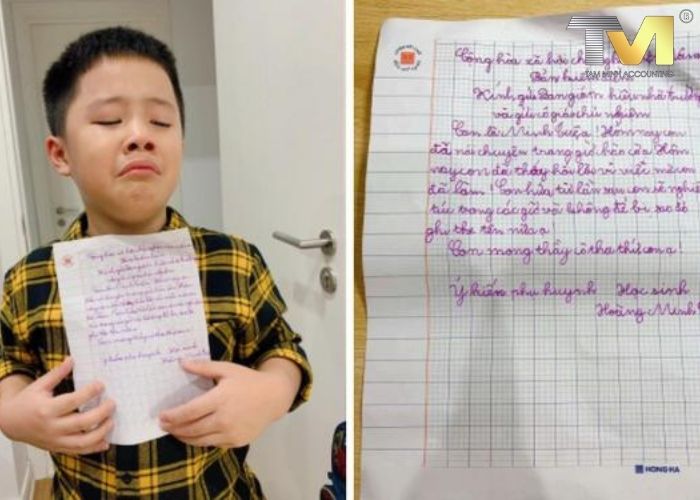 TM
TAM MINH ACCOUNTING
Cộng hòa xã hội
Bản
Kính gửi Ban giám hiệu nhà trường
và gửi cô giáo chủ nhiệm
Con là Minh ! Hôm nay con
đã nói chuyện trong giờ chào cờ. Hôm
nay con đã thấy hối lỗi vì việc mà con
đã làm ! Con hứa từ lần sau con sẽ nghiêm
túc trong các giờ và không để bị sao đỏ
ghi tên nữa ạ
Con mong thầy cô tha thứ con ạ !
Ý kiến phụ huynh Học sinh
Hoàng Minh
HONG HA